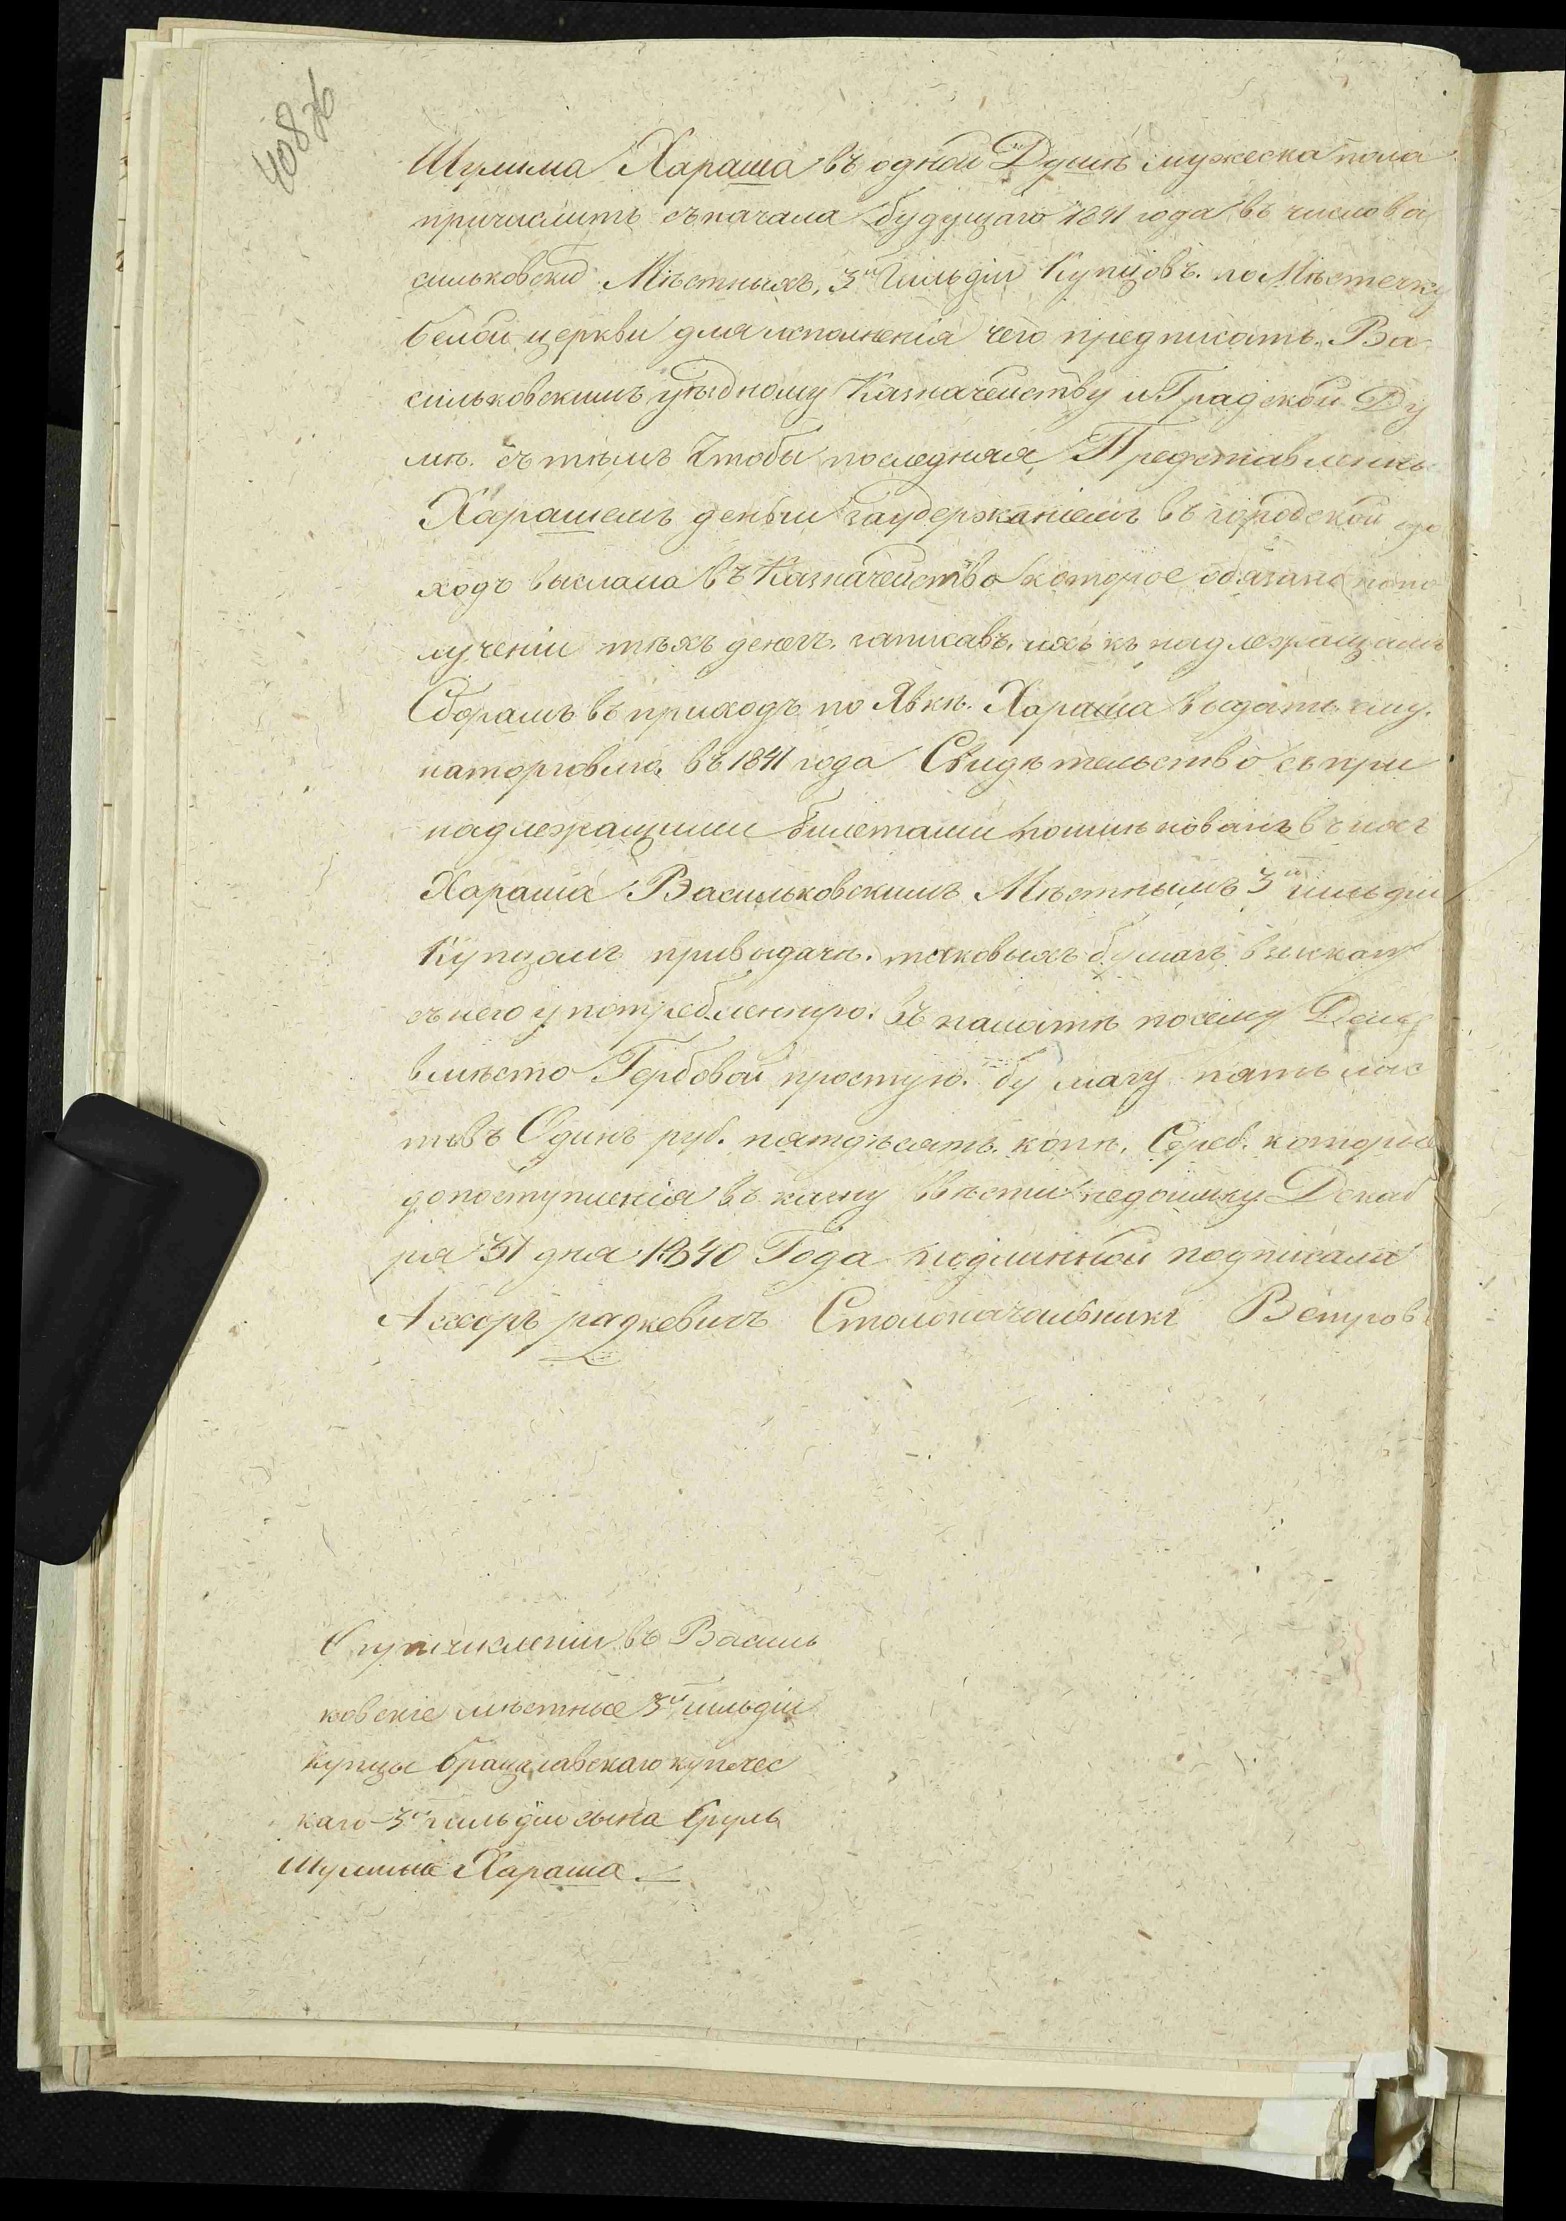 408
Шулима Хараша въ одной Душѣ мужеска пола
причислить съ начала будущаго 1841 года въ число ва
сильковскихъ Мѣстныхъ, 3й Гильдіи Купцовъ. по Мѣстечку
белой церкви для исполненія чего предписать. Ва
сильковскимъ уѣздному Казначейству и Градской Ду
мѣ. съ тѣмъ Чтобы последняя Представленны
Харашемъ деньги заудержаніемъ въ городской до
ходъ выслала въ Казначейство которое обязано попо
лученіи тѣхъ денегъ. записавъ. ихъ къ надлежащимъ
Сборамъ въ приходъ по Явкѣ. Хараша выдать ему.
наторговлю. въ 1841 года Свидѣтельство съ при
надлежащими билетами поименовавъ въ нихъ
Хараша Васильковскимъ Мѣстнымъ 3й гильдіи
Купцомъ при выдачѣ. таковыхъ бумагъ взыскать
съ него употребленную. въ палатѣ посему Делу
вмѣсто Гербовой простую. бумагу пять лис
товъ Одинъ руб. пятдѣсятъ. копѣ. Сереб. которые
допоступленія въ казну ввѣсти недоимку Декаб
ря 31 дня 1840 Года подлинной подписали
Асесоръ радкевичъ Столоначальникъ
О причисленіи въ Василь
ковскіе мѣстные 3й гильдіи
купцы брацлавскаго купечес
каго 3й гильдіи сына Сруль
Шулима Хараша